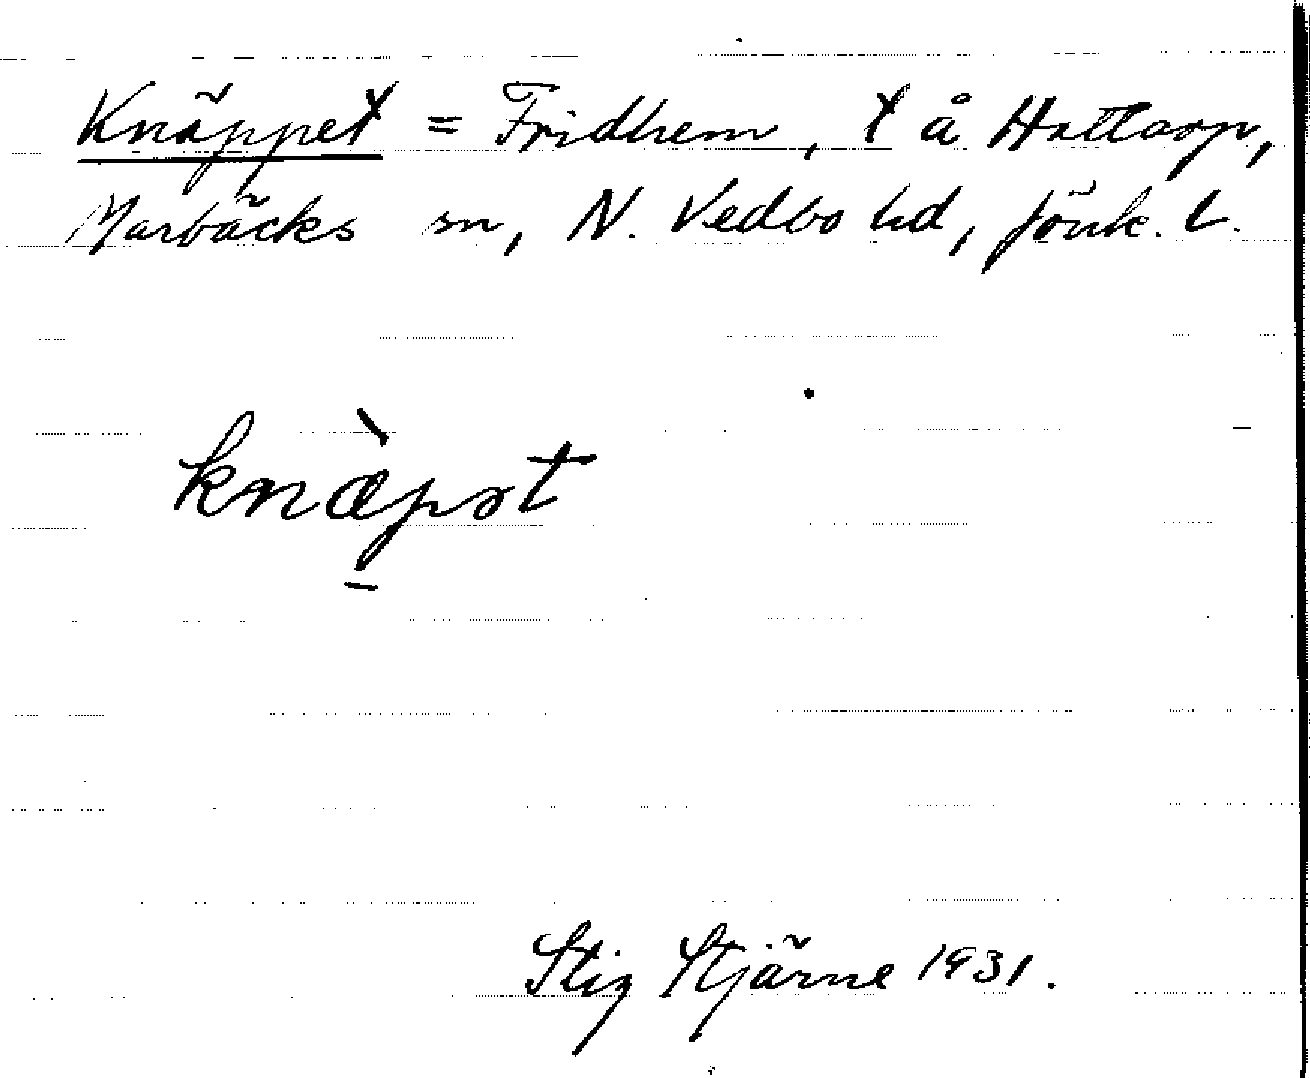 Knäppet = Fridhem, t å Hattarp,
Marbäcks sn, N. Vedbo hd, Jönk. l.
knæ̀pət
Stig Stjärne 1931.